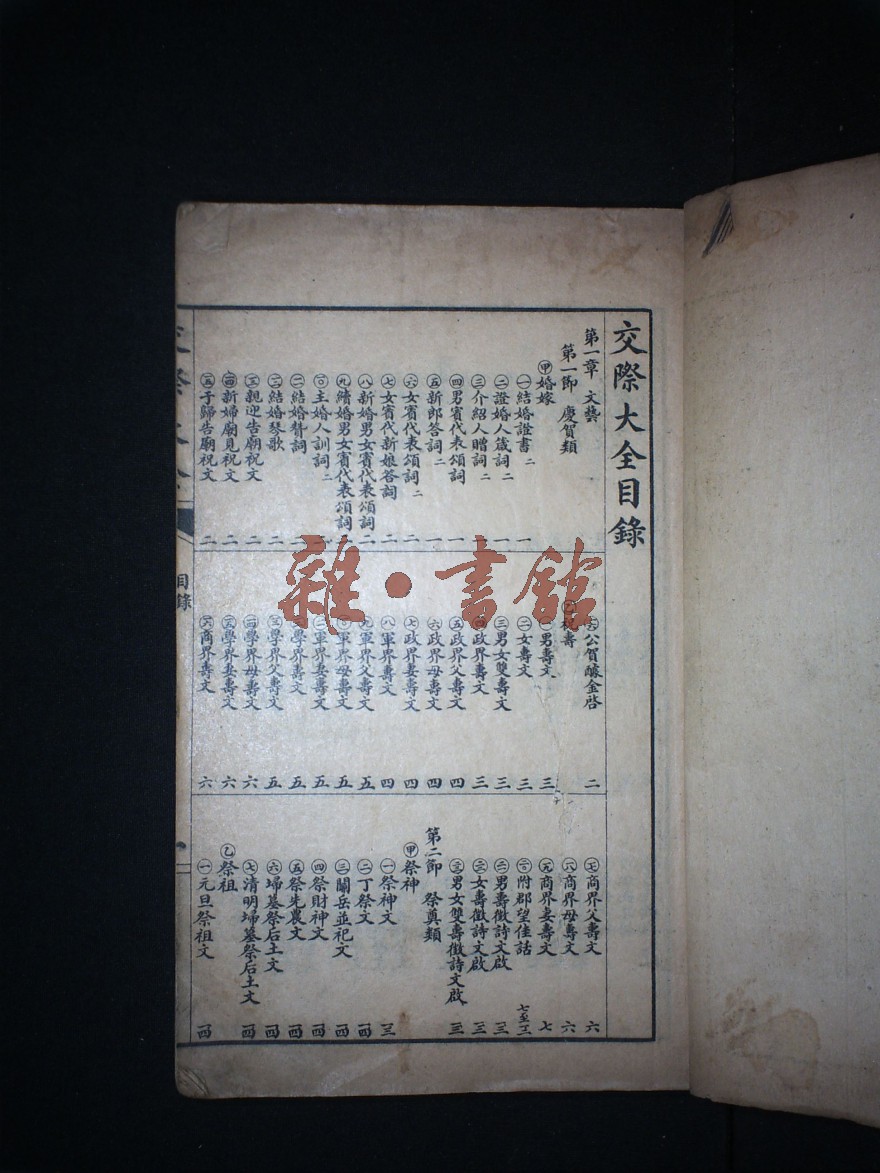 交際大全目錄
第一章 文藝
第一節 慶賀類
㊙婚嫁
㊀結婚證書 二 一
㊁證婚人箴詞 二 一
㊂介紹人贈詞 二 一
㊃男賓代表頌詞 一
㊄新郎答詞 二 一
㊅女賓代表頌詞 二 二
㊆女賓代新娘答詞 二
㊇新婚男女賓代表頌詞 二
㊈續婚男女賓代表頌詞
主婚人訓詞 二
結婚贊詞
結婚琴歌
親迎告廟祝文 二
新婦廟見祝文 二
于歸告廟祝文 二
公賀醵金啓 二
壽
㊀男壽文 三
㊁女壽文 三
㊂男女雙壽文 三
㊃政界壽文 三
㊄政界父壽文 四
㊅政界母壽文 四
㊆政界妻壽文 四
㊇軍界壽文 四
㊈軍界父壽文 五
軍界母壽文 五
軍界妻壽文 五
學界壽文 五
學界父壽文 五
學界母壽文 六
學界妻壽文 六
商界壽文 六
商界父壽文 六
商界母壽文 六
商界妻壽文 七
附郡望佳話 七至二
男壽徵詩文啟
女壽徵詩文啟
男女雙壽徵詩文啟
第二節 祭奠類
甲祭神
㊀祭神文
㊁丁祭文
㊂關岳並祀文
㊃祭財神文
㊄祭先農文
㊅埽墓祭后土文
㊆清明埽墓祭后土文
乙祭祖
㊀元旦祭祖文
目錄
雜·書館